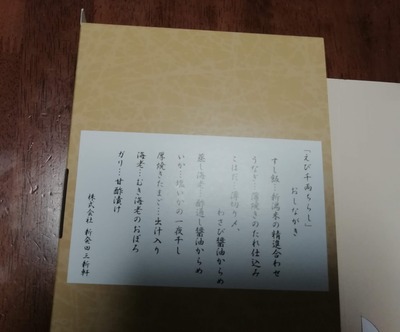 「えび千両ちらし」
おしながき
すし飯…新潟米の精進合わせ
うなぎ…薄焼きのたれ仕込み
こはだ…薄切り〆、
わさび醤油からめ
蒸し海老…酢通し醤油からめ
いか…塩いかの一夜干し
厚焼きたまご…出汁入り
海老…むき海老のおぼろ
ガリ…甘酢漬け
株式会社 新発田三新軒